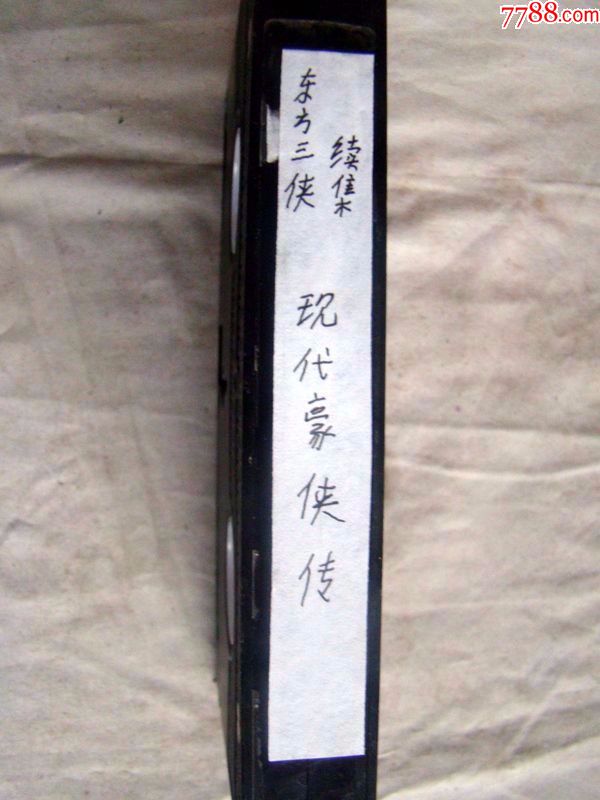 7788.com
东方三侠
续集
现代豪侠传